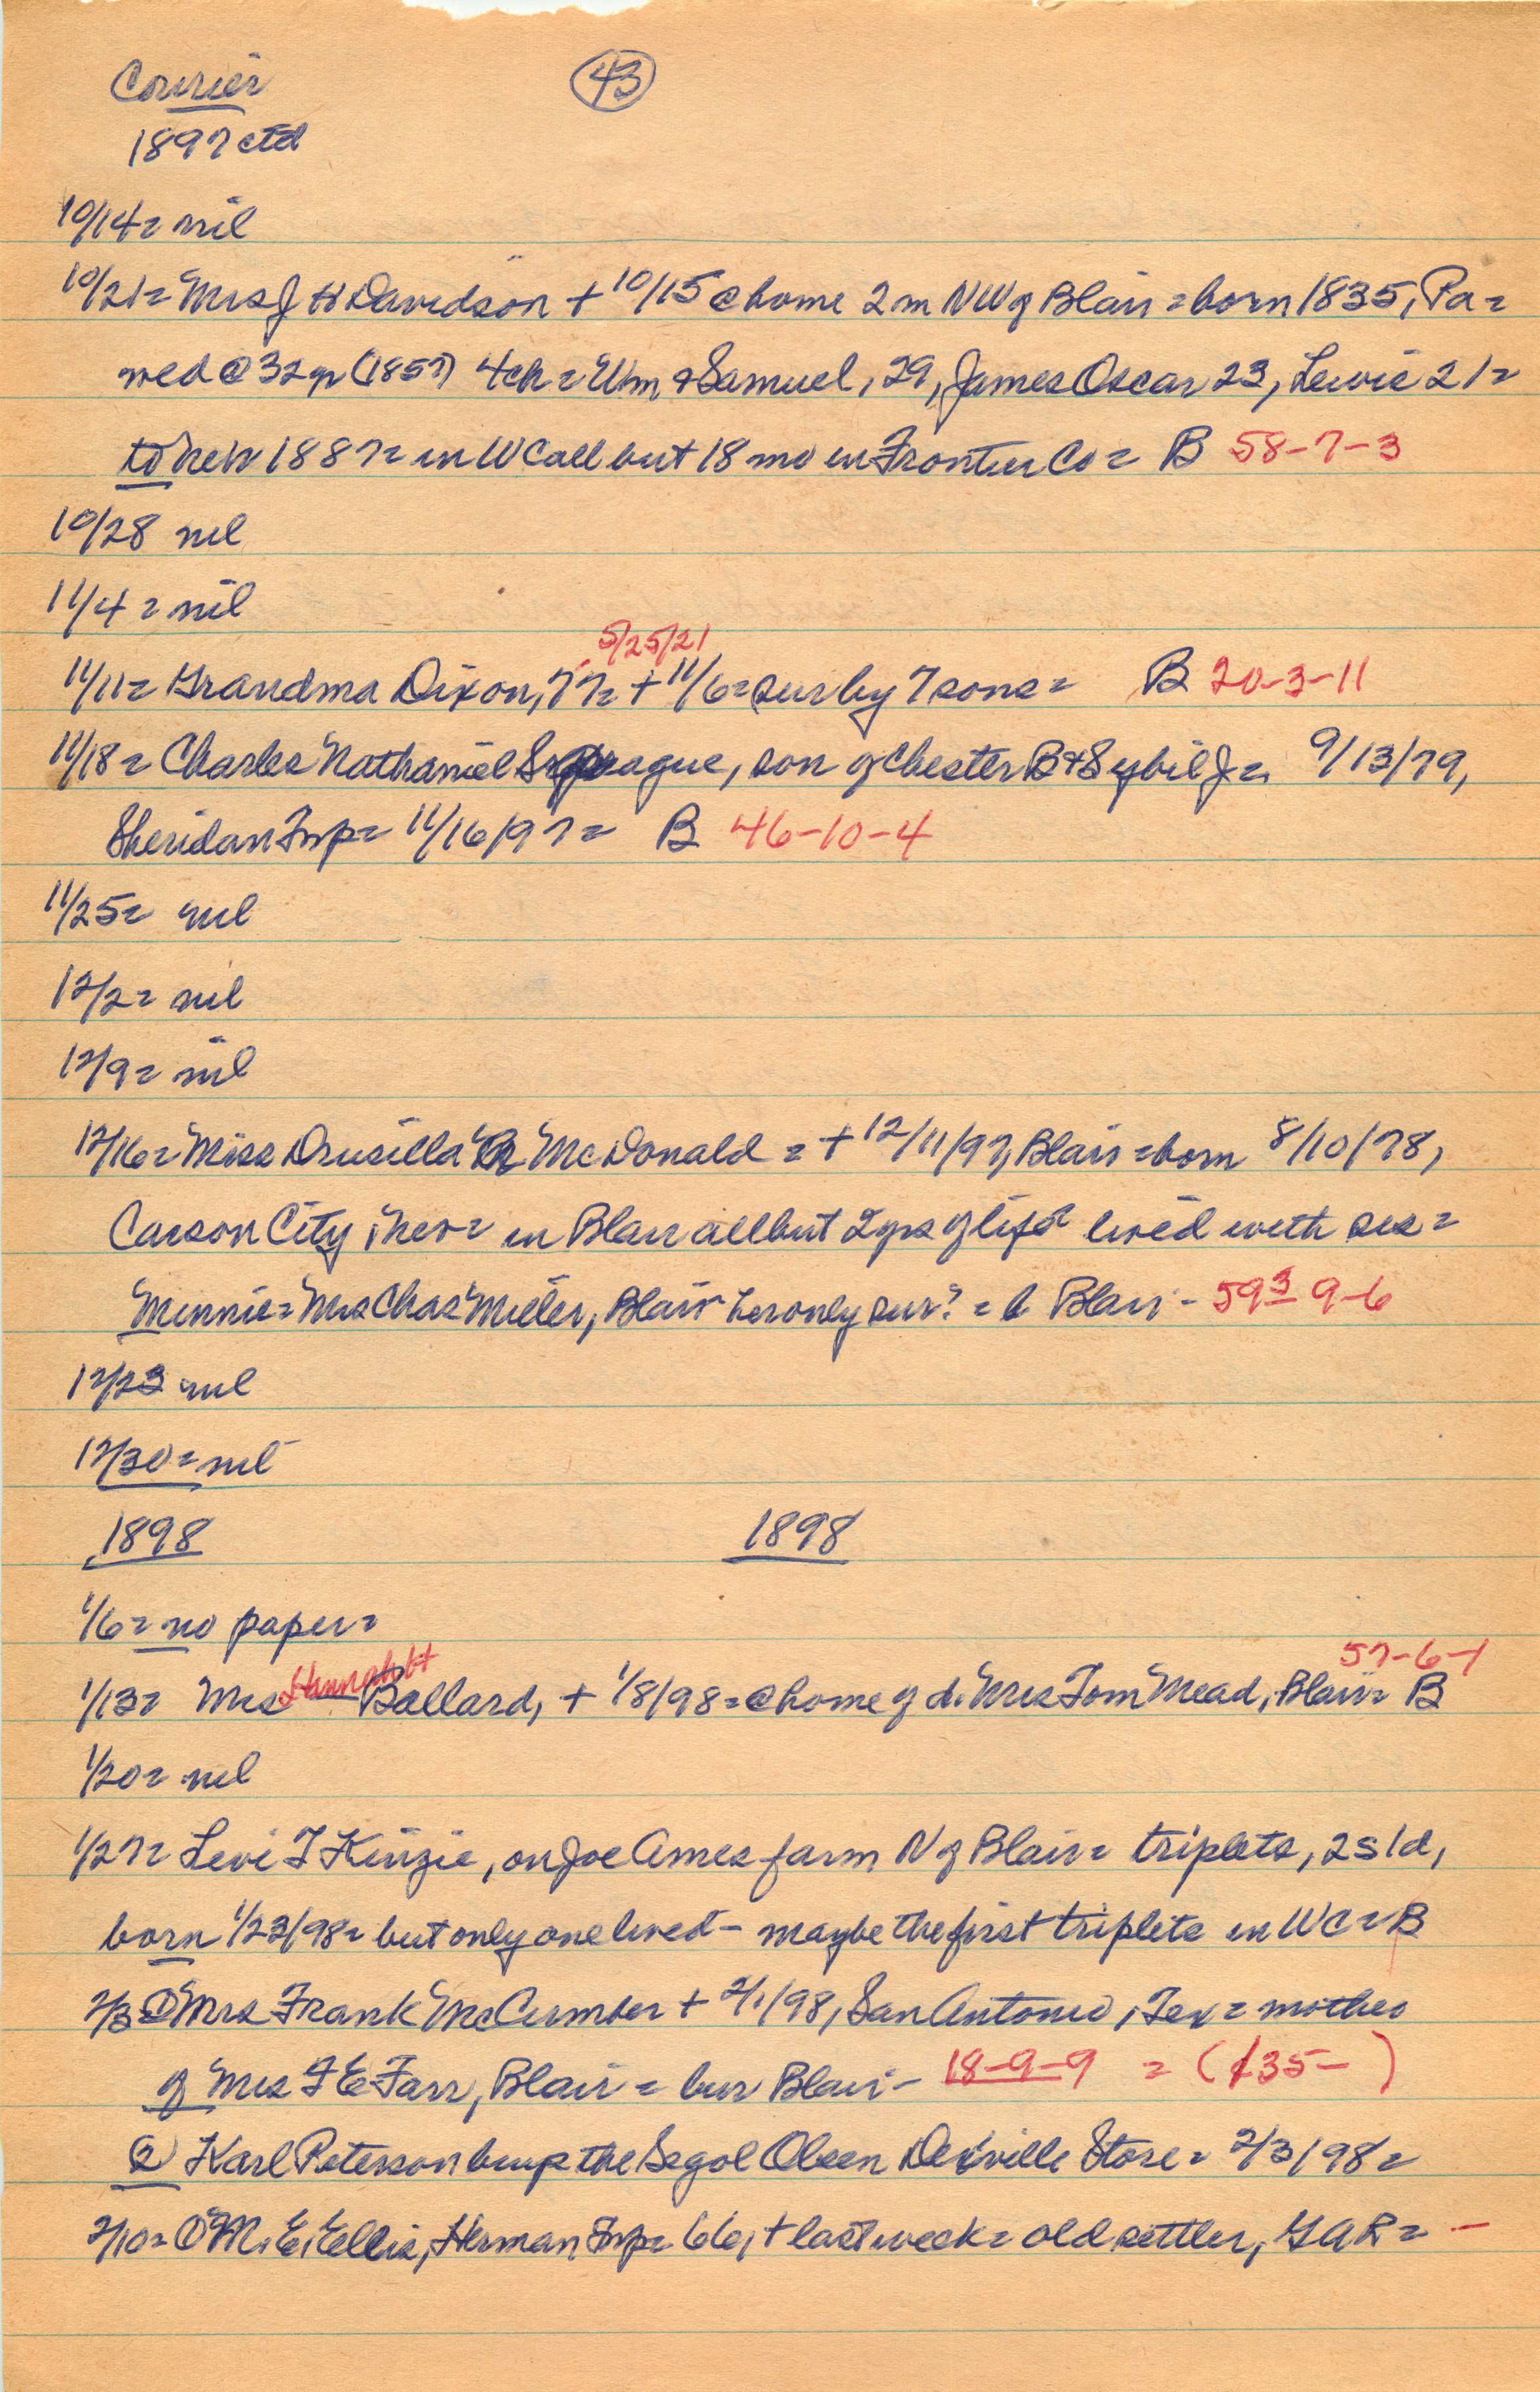 Courier
43
1897 ctd
10/14 = nil
10/21 = Mrs J H Davidson + 10/15 @ home 2 m NW of Blair = born 1835, Pa =
med @ 32 yr (1857) 4 ch = Wm & Samuel, 29, James Oscar 23, Lewie 21 =
to Neb 1887 = in WC all but 18 mo in Frontier Co = B 58-7-3
10/28 nil
11/4 = nil
5/25/21
11/11 = Grandma Dixon, 77 = + 11/6 = sur by 7 sons = B 20-3-11
11/18 = Charles Nathaniel Sprague, son of Chester B & Sybil J = 9/13/79,
Sheridan Twp = 11/16/97 = B 46-10-4
11/25 = nil
12/2 = nil
12/9 = nil
12/16 = Miss Drusilla McDonald = + 12/11/97, Blair = born 8/10/78,
Carson City, Nev = in Blair all but 2 yrs of life lived with sis =
Minnie = Mrs Chas Miller, Blair her only sur? = b Blair - 59 3 9-6
12/23 nil
12/30 = nil
1898 1898
1/6 = no paper =
57-6-1
1/13 = Mrs Ballard, + 1/8/98 = @ home of d. Mrs Tom Mead, Blair = B
1/20 = nil
1/27 = Levi T Kinzie, on Joe Ames farm N of Blair = triplets, 2 s 1 d,
born 1/23/98 = but only one lived - maybe the first triplets in WC = B
2/3 = ① Mrs Frank McCumber + 2/1/98, San Antonio, Tex = mother
of Mrs F E Farr, Blair = bur Blair - 18-9-9 = (135-)
② Karl Peterson buys the Segol Olsen Dexville Store = 2/3/98 =
2/10 = ① M. E. Ellis, Herman Twp = 66, + last week = old settler, GAR = -